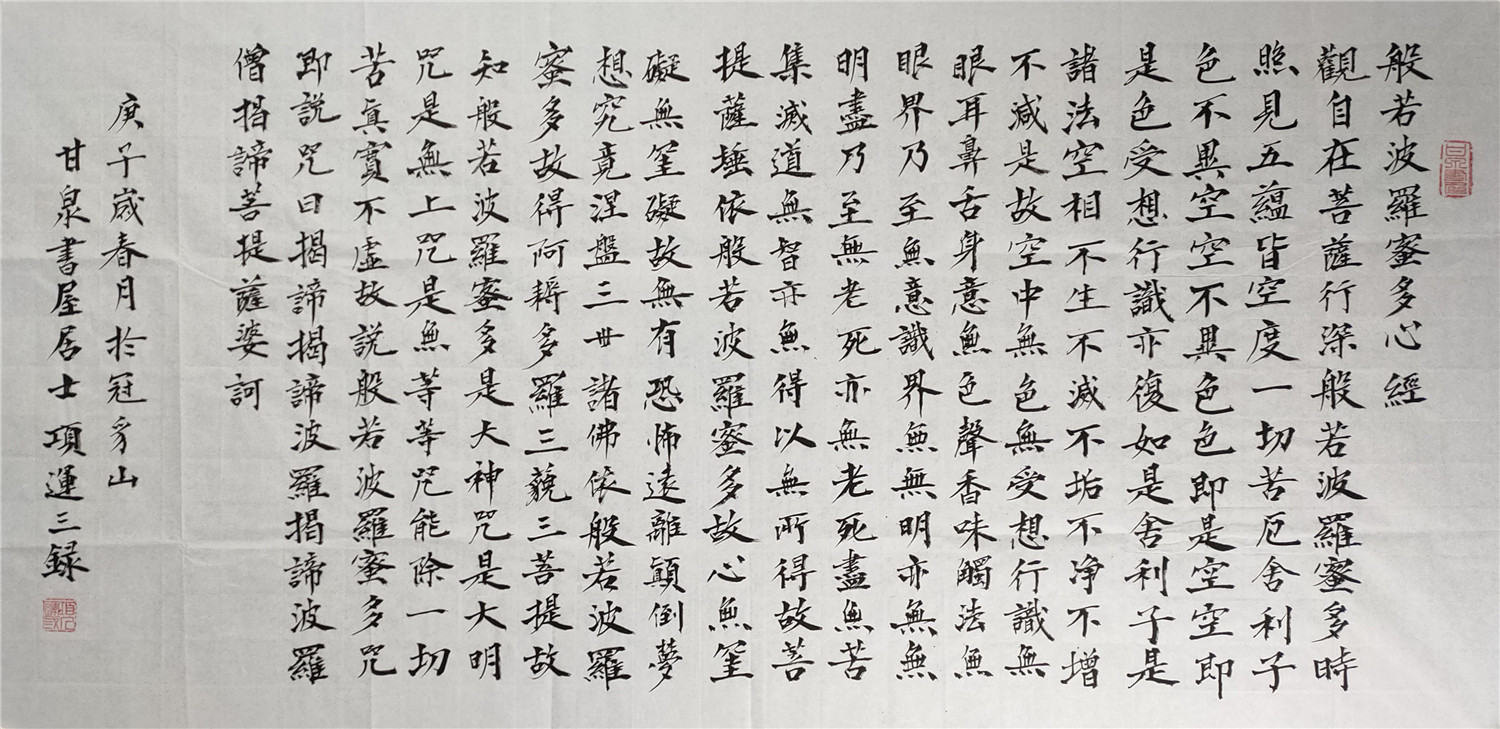 般若波羅蜜多心經
觀自在菩薩行深般若波羅蜜多時
照見五蘊皆空度一切苦厄舍利子
色不異空空不異色色即是空空即
是色受想行識亦復如是舍利子是
諸法空相不生不滅不垢不净不增
不減是故空中無色無受想行識無
眼耳鼻舌身意無色聲香味觸法無
眼界乃至無意識界無無明亦無無
明盡乃至無老死亦無老死盡無苦
集滅道無智亦無得以無所得故菩
提薩埵依般若波羅蜜多故心無罣
礙無罣礙故無有恐怖遠離顛倒夢
想究竟涅盤三世諸佛依般若波羅
蜜多故得阿耨多羅三藐三菩提故
知般若波羅蜜多是大神咒是大明
咒是無上咒是無等等咒能除一切
苦真實不虛故說般若波羅蜜多咒
即説咒曰揭諦揭諦波羅揭諦波羅
僧揭諦菩提薩婆訶
庚子歲春月於冠豸山
甘泉書屋居士項運三録